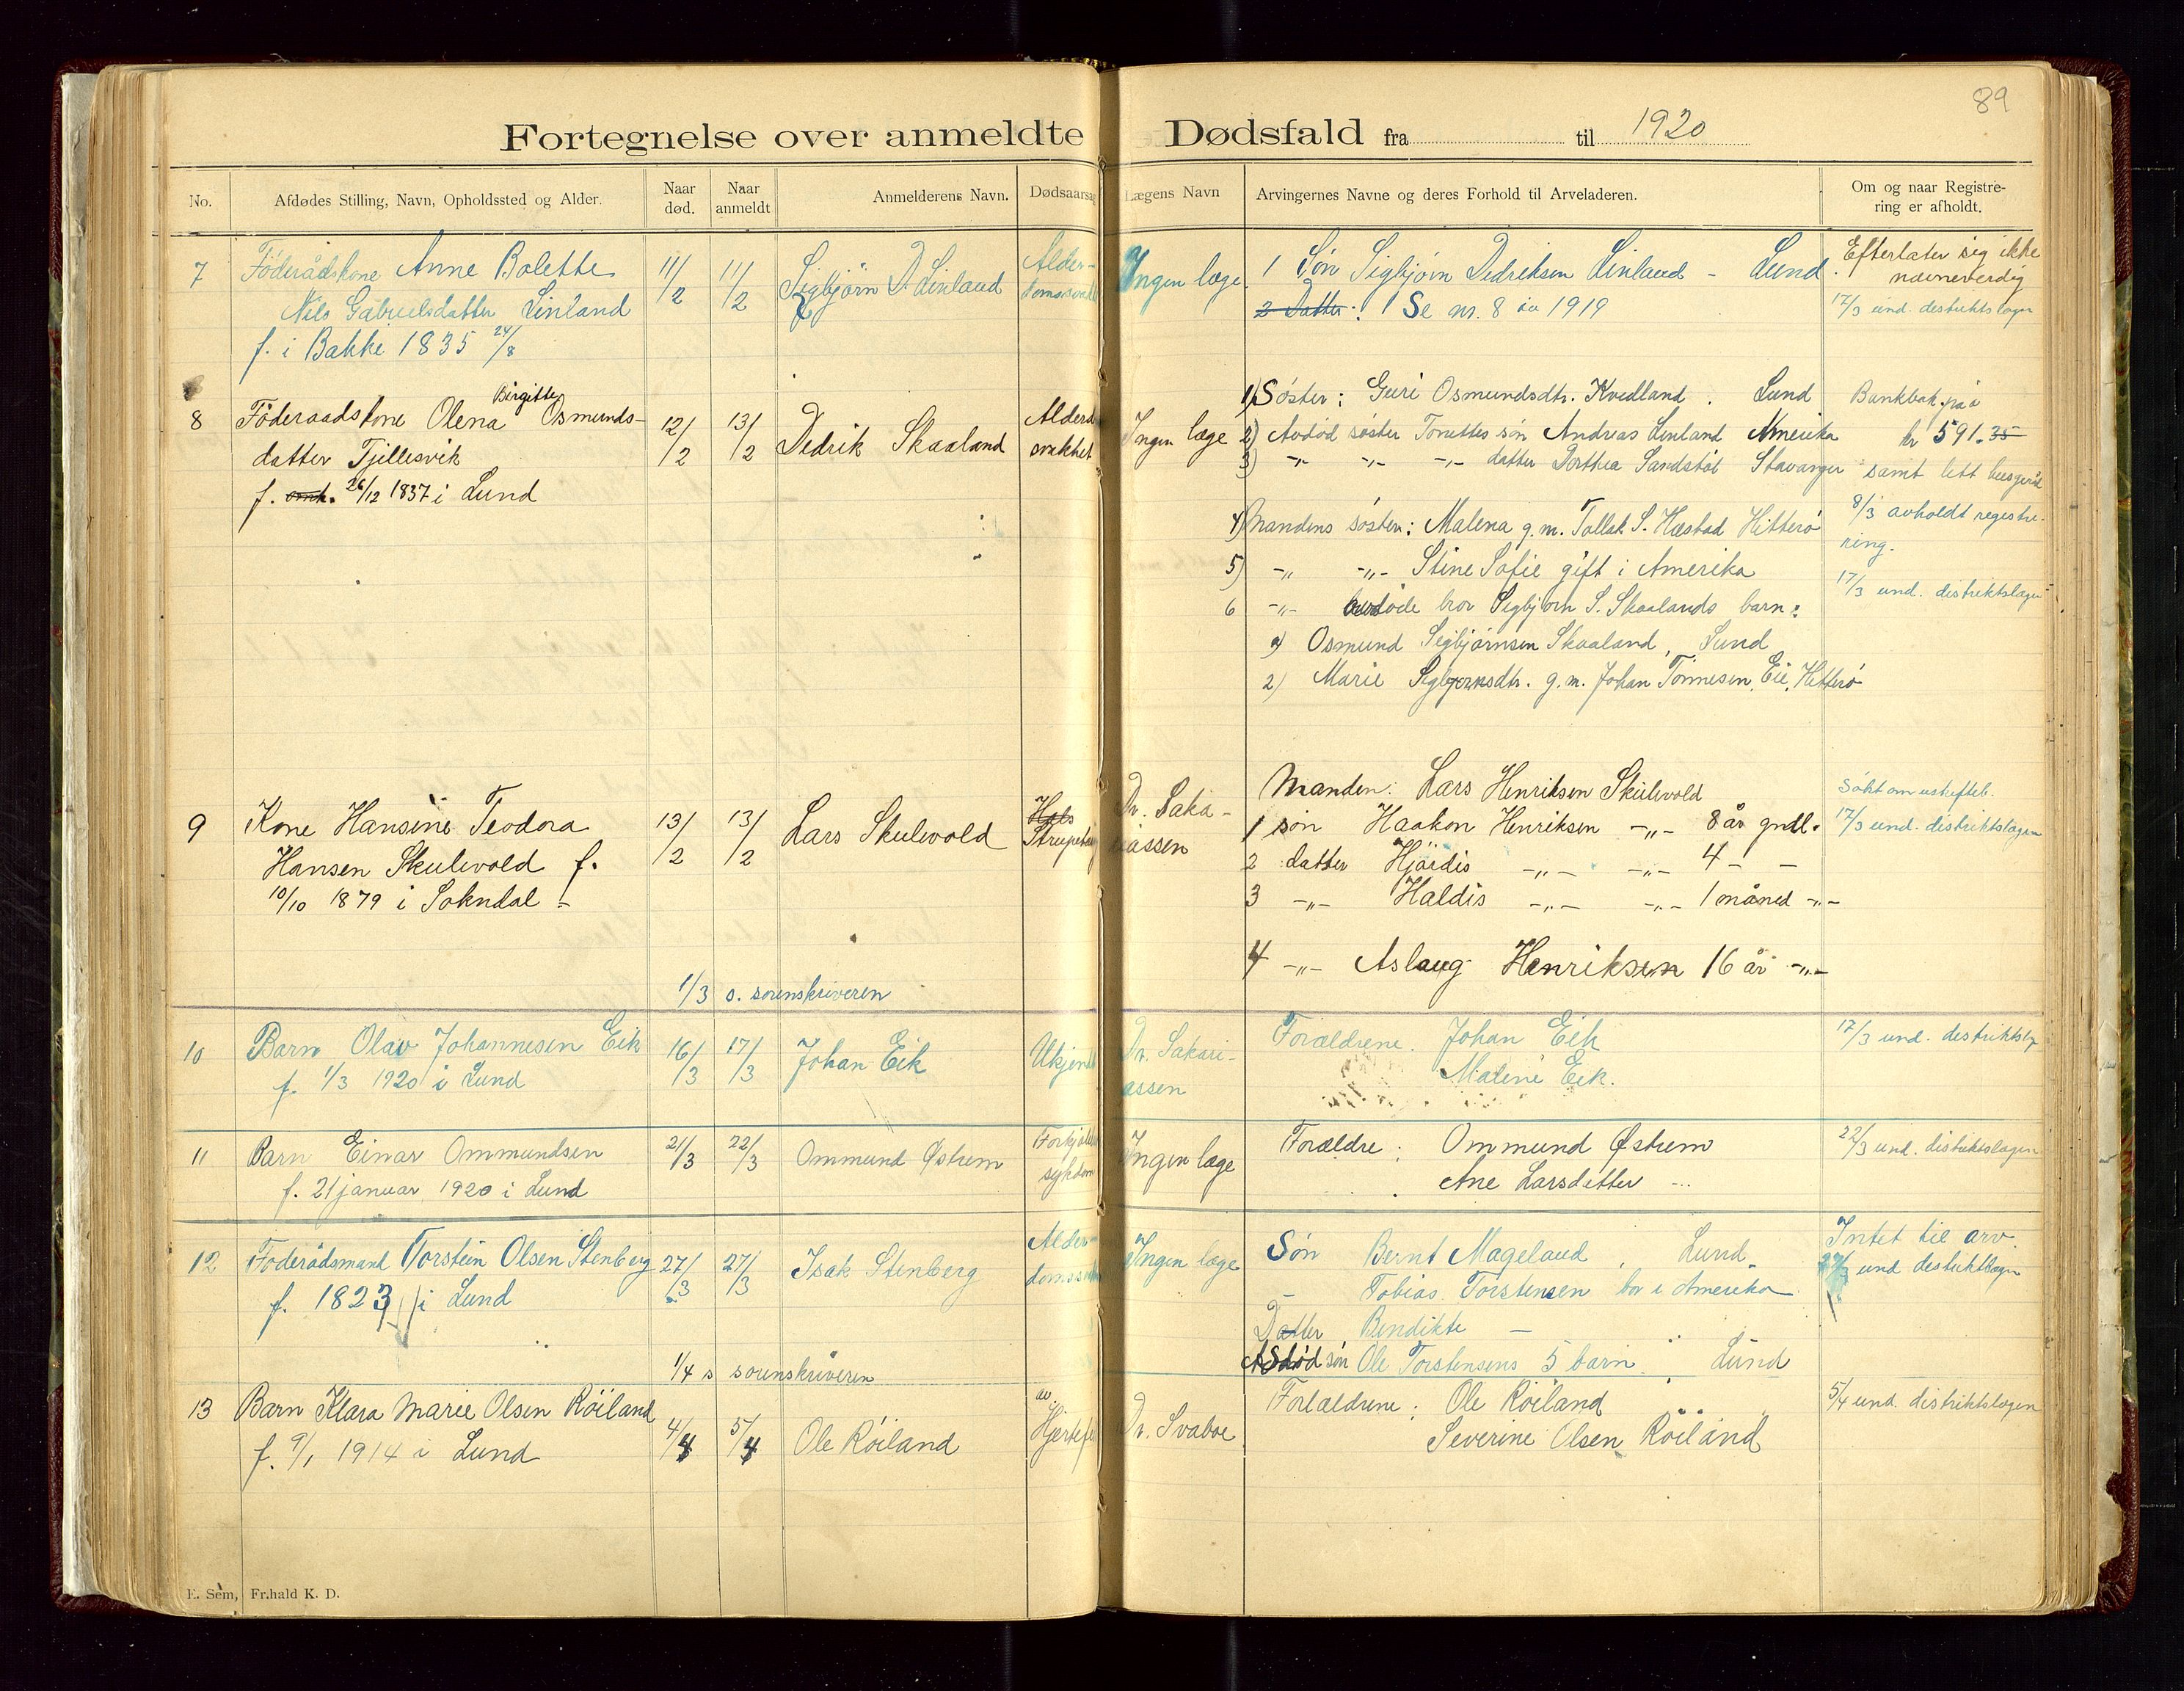 89
Fortegnelse over anmeldte Dødsfald fra til 1920
No. Afdødes Stilling, Navn, Opholdssted og Alder. Naar død. Naar anmeldt Anmelderens Navn. Dødsaarsag Lægens Navn Arvingernes Navne og deres Forhold til Arveladeren. Om og naar Registrering er afholdt.
7 Föderådskone Anne Bolette 11/2 11/2 Sigbjörn D. Linland Alder- Ingen læge. 1 Søn Sigbjörn Dedriksen Linland - Lund. Efterlater sig ikke
Nils Gabrielsdatter Linland 2 Datter: 1 Se nr. 8 i 1919 navneverdig
f. i Bakke 1835 24/8 17/3 und. distriktslægen
8 Föderaadskone Olena Birgitte Osmunds- 12/2 13/2 Dedrik Skaaland Alderd svakhet Ingen læge
datter Tjellesvik
f. omk. 26/12 1837 i Lund
1) Søster: Guri Osmundsdtr. Kvedland. Lund Bankbok paa
2) Avdöd søster Tonettes søn Andreas Linland Amerika kr 591.35
3) -"- -"- -"- datter Dorthea Sandstöl Stavanger samt litt husgeråd
4) Mandens søster: Malena g.m. Tollak S. Hæstad Hitterö 8/3 avholdt registre-
ring.
5) -"- -"- Stine Sofie gift i Amerika 17/3 und. distriktslægen
6 -"- avdöde bror Sigbjörn S. Skaalands barn:
Osmund Sigbjörnsen Skaaland, Lund
2) Marie Sigbjørnsdtr. g.m. Johan Tönnesen, Eie, Hitterö
9 Kone Hansine Teodora 13/2 13/2 Lars Skulevold Hals Dr. Saka-
Hansen Skulevold f. riassen
10/10 1879 i Sokndal
Manden: Lars Henriksen Skulevold
1 søn Haakon Henriksen -"- 8 år gndl. 17/3 und. distriktslægen
2 datter Hjördis -"- -"- 4 - -
3 -"- Haldis -"- -"- 1 måned -"-
4 -"- Aslaug Henriksen 16 år -"-
1/3 s. sorenskriveren
10 Barn Olav Johannesen Eik 16/3 17/3 Johan Eik Ukjendt Dr. Sakari- Forældrene. Johan Eik 17/3 und. distriktslg
f. 1/3 1920 i Lund assen Malene Eik.
11 Barn Einar Ommundsen 21/3 22/3 Ommund Østrem Ingen læge Forældre: Ommund Østrem 22/3 und. distriktslægen
f. 21 januar 1920 i Lund Ane Larsdatter -"-
12 Föderådsmand Torstein Olsen Stenberg 27/3 27/3 Isak Stenberg Alder- Ingen læge Søn Bernt Mageland, Lund. Intet til arv.
f. 1823 i Lund - Tobias Torstensen bor i Amerika 27/3 und distriktslægen
Datter Bendikte -
Avdöd søn Ole Torstensens 5 barn. Lund
1/4 s sorenskriveren
13 Barn Klara Marie Olsen Röiland 4/4 5/4 Ole Röiland av Dr. Svaboe Forældrene: Ole Röiland 5/4 und. distriktslægen
f. 9/1 1914 i Lund Severine Olsen Röiland
E. Sem, Fr.hald K. D.